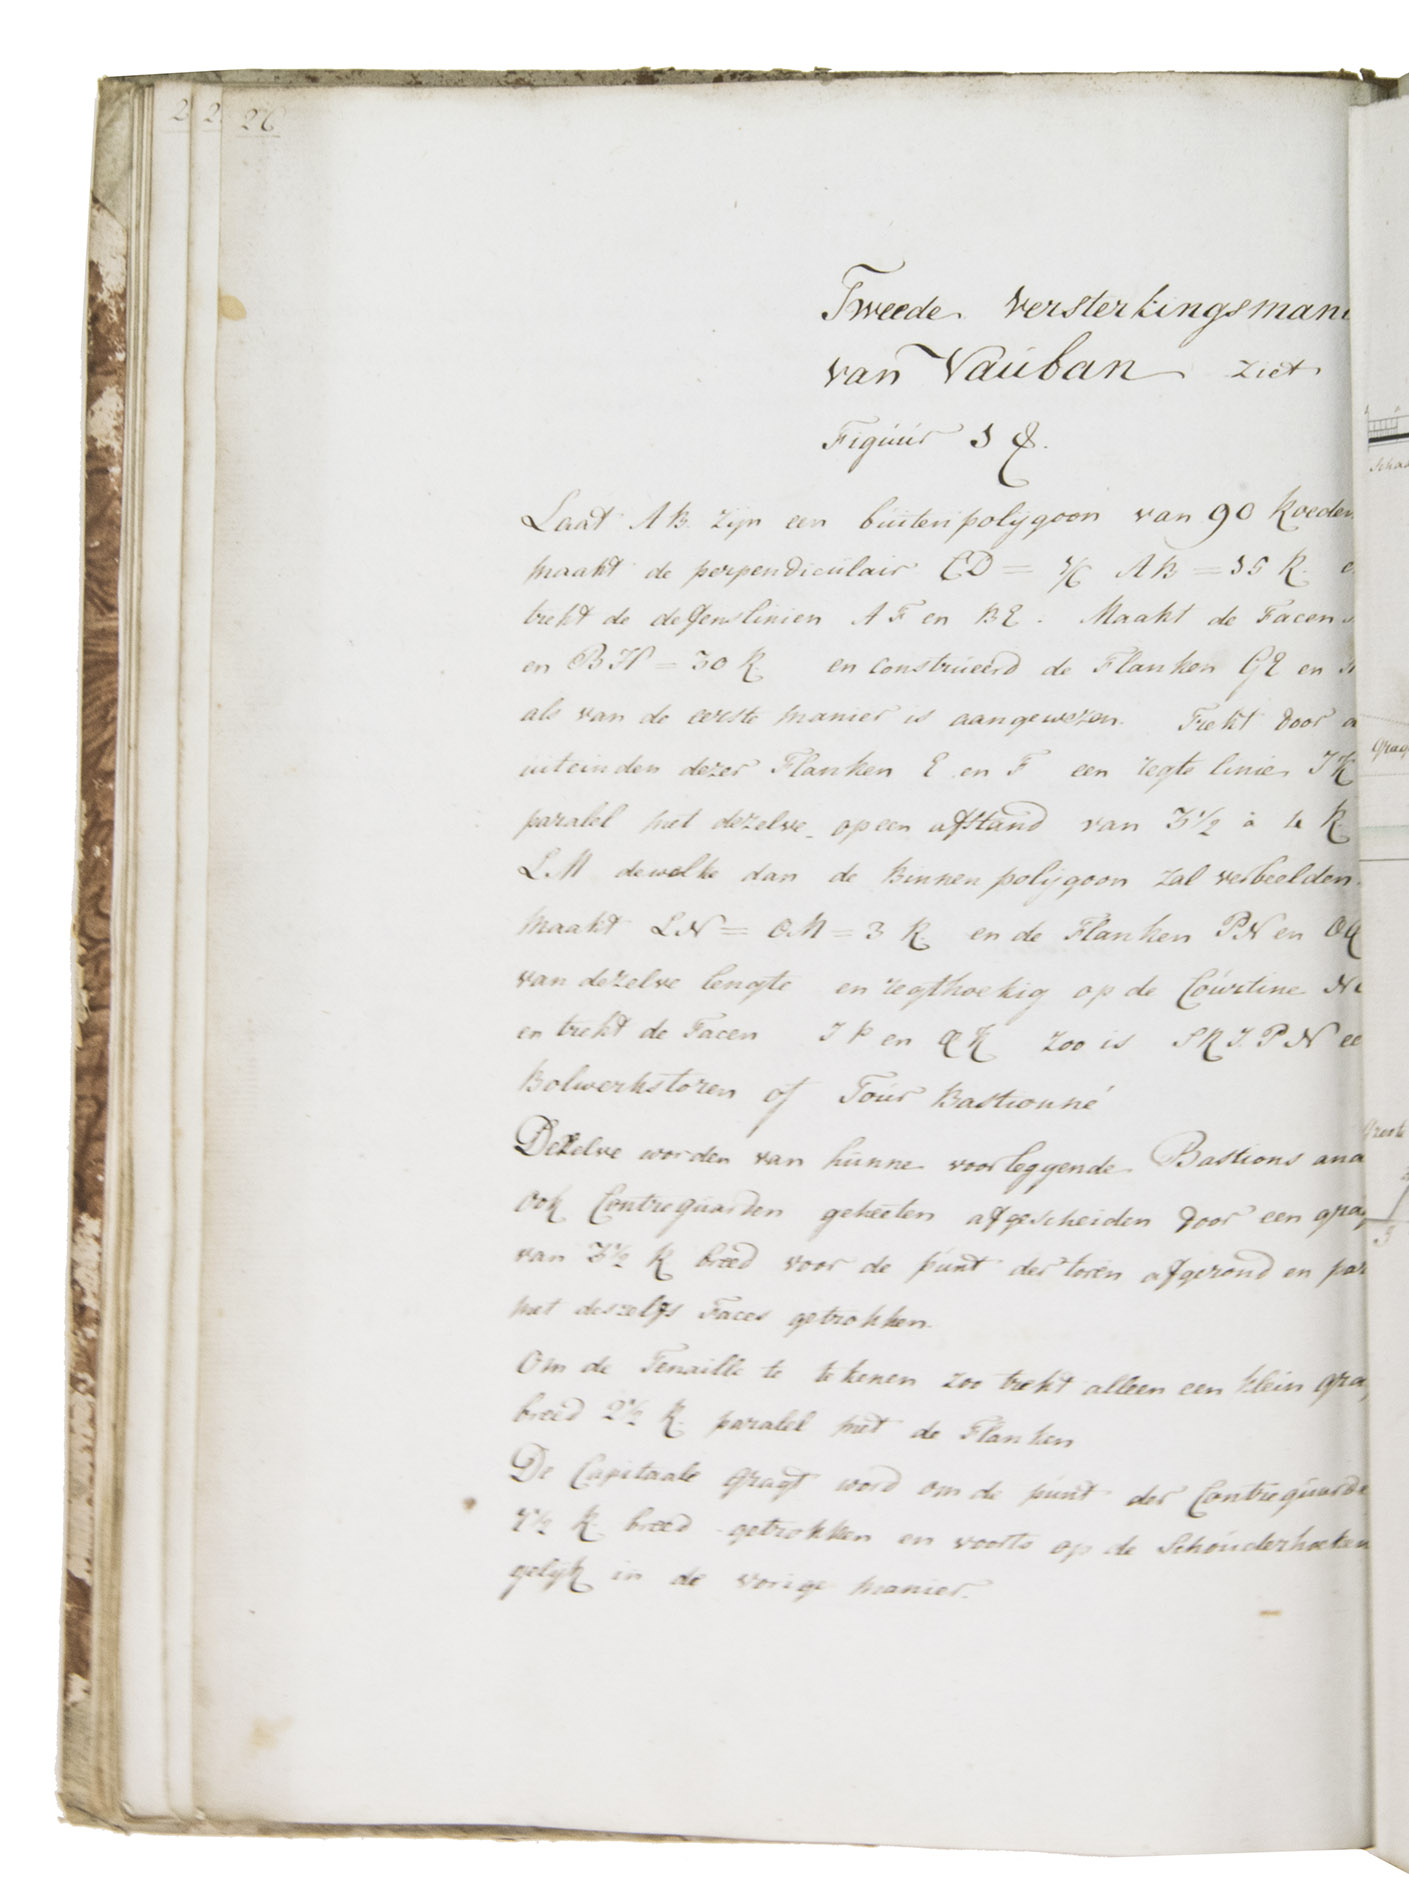 2
2
26
Tweede versterkingsmani
van Vauban ziet
Figuur 1
Laat AB. zijn een buitenpolijgoon van 90 Roeden
maakt de perpendiculair CD = 1/6 AB = 15 R. e
trekt de defenslinien AF en BE. Maakt de Facen
en BH = 30 R. en construeerd de Flanken GE en H
als van de eerste manier is aangewezen. Trekt door d
uiteinden dezer Flanken E en F een regte linie IK
paralel met dezelve op een afstand van 3 1/2 à 4 R
LM dewelke dan de Binnenpolijgoon zal verbeelden.
Maakt LN = OM = 3 R. en de Flanken PN en OQ
van dezelve lengte en regthoekig op de Courtine N
en trekt de Facen IP en QK zoo is SRIPN ee
Bolwerkstoren of Tour Bastionné
Dezelve worden van hunne voorleggende Bastions and
ook Contreguarden geheeten afgescheiden door een grag
van 3 1/2 R breed voor de punt der toren afgerond en par
met deszelfs Faces getrokken.
Om de Tenaille te tekenen zoo trekt alleen een klein gra
breed 2 1/2 R. paralel met de Flanken
De Capitaale gragt word om de punt der Contreguarde
7 1/2 R. breed getrokken en voorts op de Schouderhoeken
gelijk in de vorige manier.
Scha
grag